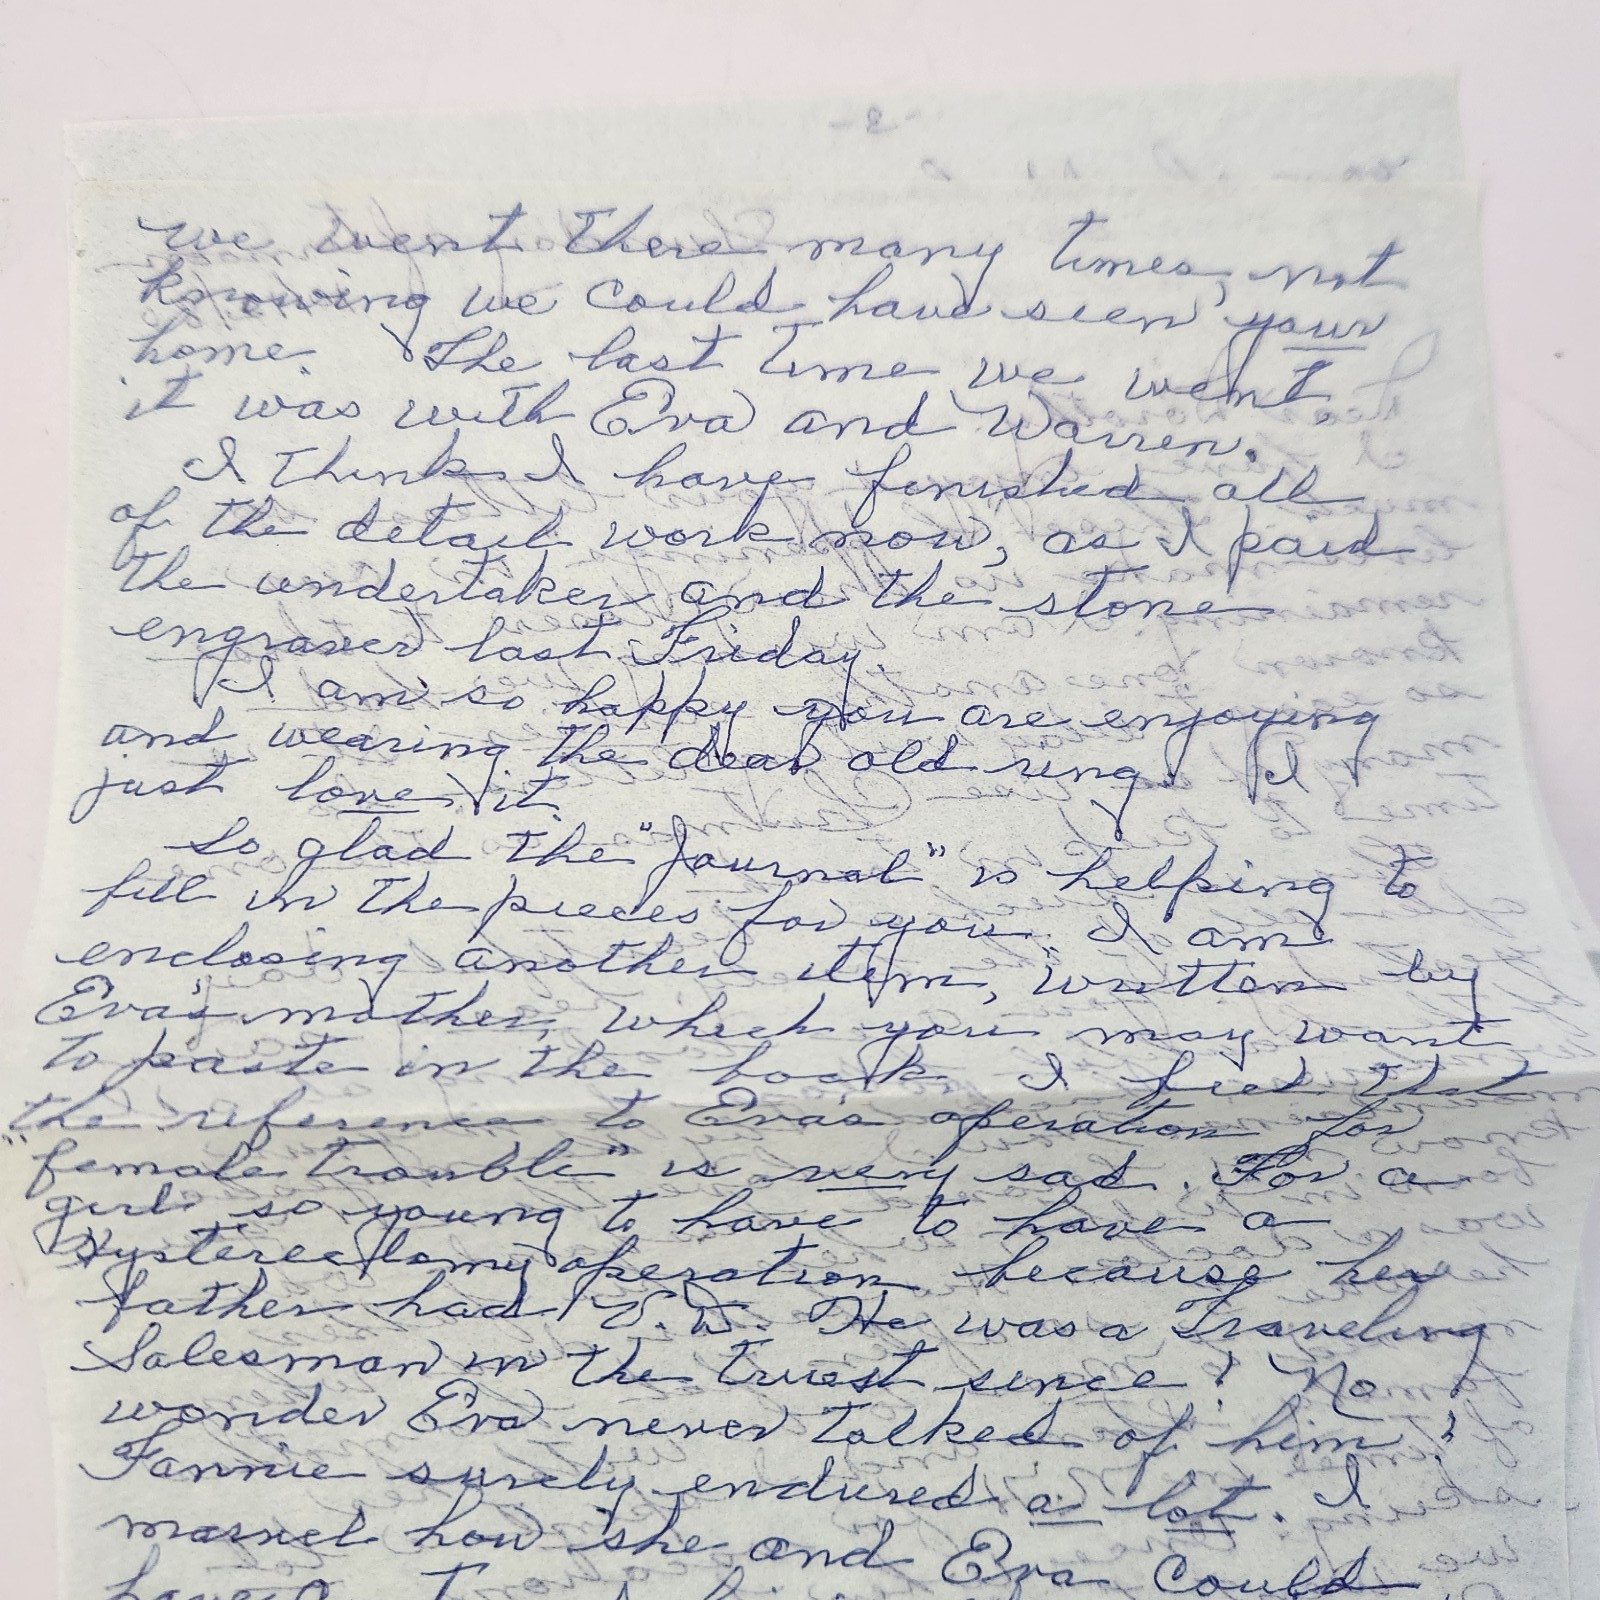 we went there many times, not
knowing we could have seen your
home. The last time we went
it was with Eva and Warren.
I think I have finished all
of the detail work now, as I paid
the undertaker and the stone
engraver last Friday.
I am so happy you are enjoying
and wearing the dear old ring. I
just love it.
So glad the "Journal" is helping to
fill in the pieces for you. I am
enclosing another item, written by
Eva's mother, which you may want
to paste in the book. I feel that
the reference to Eva's operation for
"female trouble" is very sad. For a
girl so young to have to have a
Hysterectomy operation because her
father had V.D. He was a Traveling
Salesman in the truest sence! No
wonder Eva never talked of him!
Fannie surely endured a lot. I
marvel how she and Eva could
have